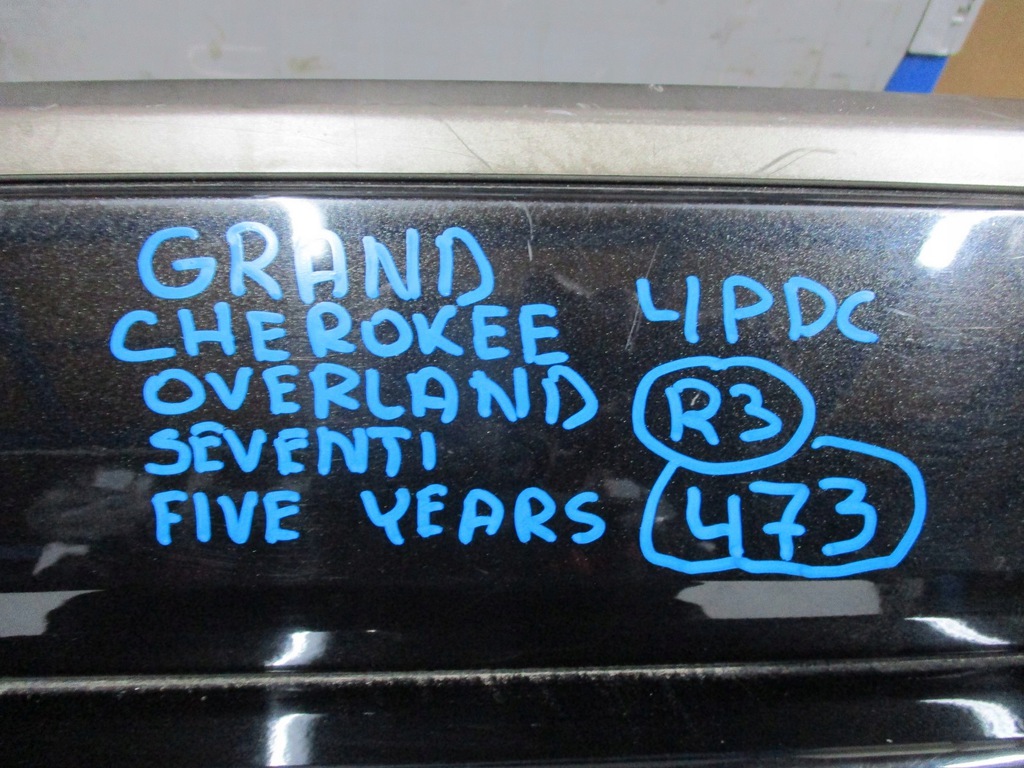 GRAND
CHEROKEE
OVERLAND
SEVENTI
FIVE YEARS
4PDC
R3
473